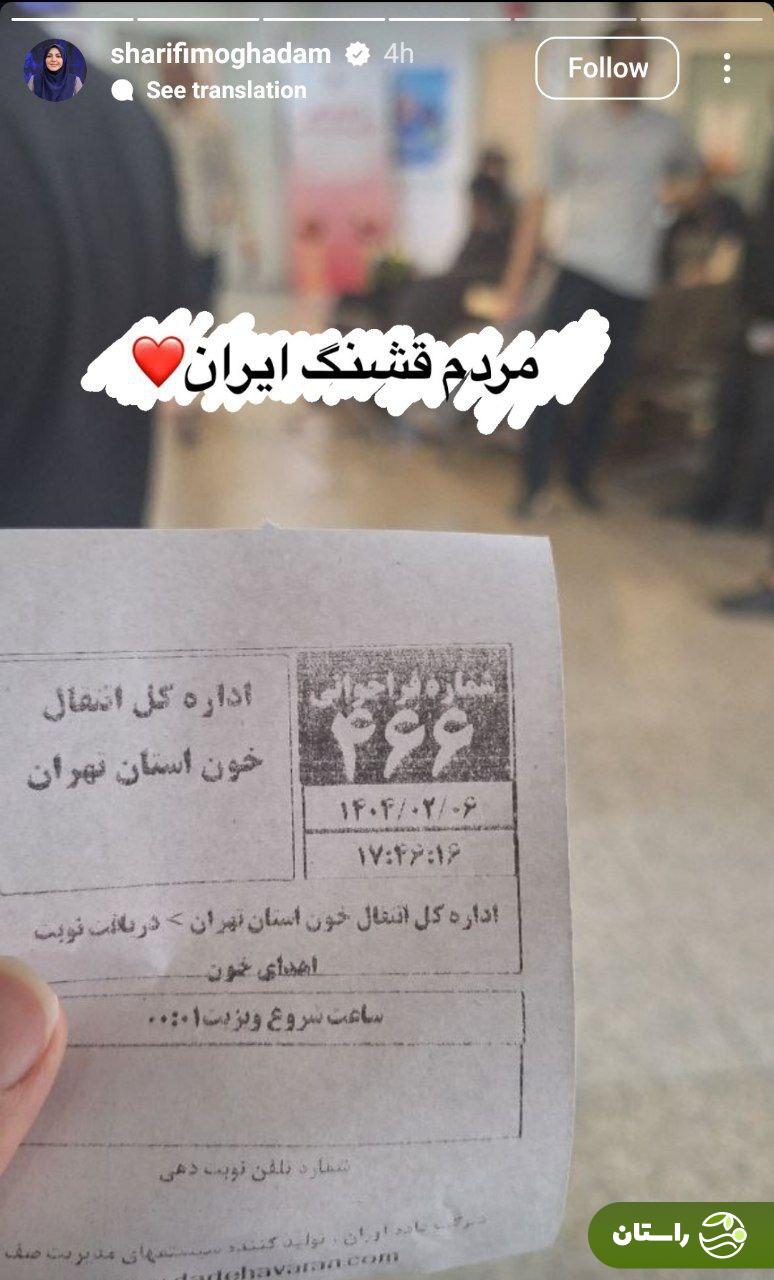 sharifimoghadam 4h
Follow
See translation
مردم قشنگ ایران❤️
شماره فراخوانی
۴۶۶
۱۴۰۴/۰۲/۰۶
۱۷:۴۶:۱۶
اداره کل انتقال
خون استان تهران
اداره کل انتقال خون استان تهران > دریافت نوبت
اهدای خون
ساعت شروع ویزیت ۰۰:۰۱
شماره تلفن نوبت دهی
تولید کننده سیستمهای مدیریت صف
راستان